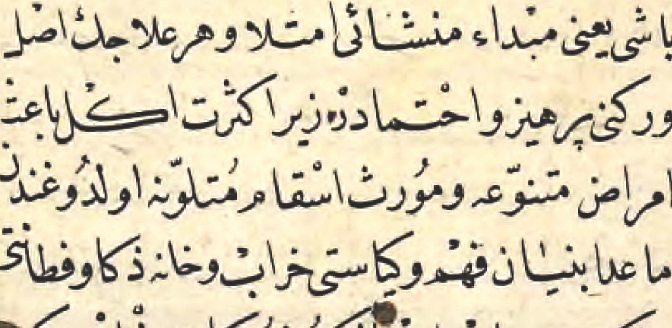 باشی یعنی مبداء منشائی امتلا و هر علاجك اصل
وركنی پرهیز و احتمادر زیرا كثرت اكل باعث
امراض متنوّعه و مُورث اسْقام مُتلوّنه اولدُوغندن
ماعدا بنیان فهم و كیاستی خراب و خانه ذكا و فطانتی